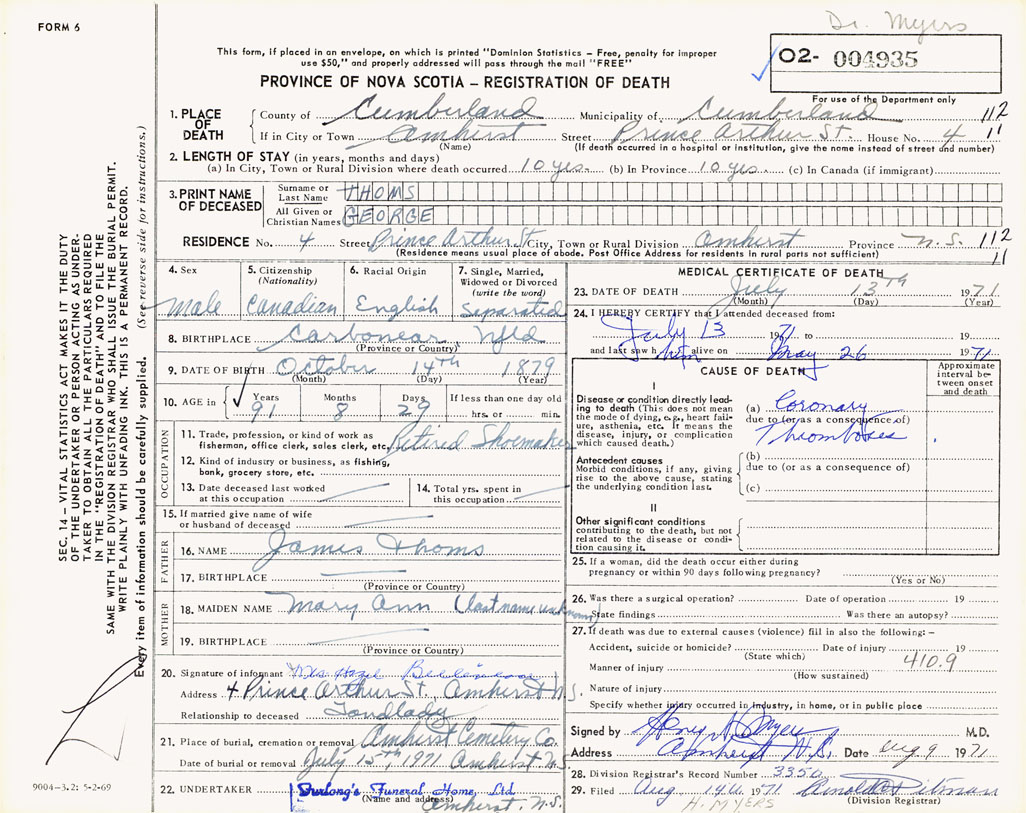 FORM 6
Dr. Myers
This form, if placed in an envelope, on which is printed "Dominion Statistics - Free, penalty for improper
use $50," and properly addressed will pass through the mail "FREE"
02- 004935
PROVINCE OF NOVA SCOTIA - REGISTRATION OF DEATH
For use of the Department only
1. PLACE OF DEATH County of Cumberland Municipality of Cumberland 112
If in City or Town Amherst Street Prince Arthur St. House No. 4 11
(Name) (If death occurred in a hospital or institution, give the name instead of street and number)
2. LENGTH OF STAY (in years, months and days)
(a) In City, Town or Rural Division where death occurred 10 yrs. (b) In Province 10 yrs. (c) In Canada (if immigrant)
3. PRINT NAME OF DECEASED Surname or Last Name THOMS
All Given or Christian Names GEORGE
RESIDENCE No. 4 Street Prince Arthur St City, Town or Rural Division Amherst Province N.S. 112
(Residence means usual place of abode. Post Office Address for residents in rural parts not sufficient) 11
4. Sex Male
5. Citizenship (Nationality) Canadian
6. Racial Origin English
7. Single, Married, Widowed or Divorced (write the word) Separated
8. BIRTHPLACE Carbonear Nfld
(Province or Country)
9. DATE OF BIRTH October 14th 1879
(Month) (Day) (Year)
10. AGE in Years Months Days If less than one day old
91 8 29 hrs. or min.
OCCUPATION
11. Trade, profession, or kind of work as
fisherman, office clerk, sales clerk, etc. Retired Shoemaker
12. Kind of industry or business, as fishing,
bank, grocery store, etc.
13. Date deceased last worked
at this occupation
14. Total yrs. spent in
this occupation
15. If married give name of wife
or husband of deceased
FATHER
16. NAME James Thoms
17. BIRTHPLACE
(Province or Country)
MOTHER
18. MAIDEN NAME Mary Ann (last name unknown)
19. BIRTHPLACE
(Province or Country)
20. Signature of informant Mrs Hazel
Address 4 Prince Arthur St. Amherst N.S.
Relationship to deceased Landlady
21. Place of burial, cremation or removal Amherst Cemetery Co.
Date of burial or removal July 15th, 1971 Amherst N.S.
22. UNDERTAKER Furlong's Funeral Home, Ltd
(Name and address) Amherst, N.S.
MEDICAL CERTIFICATE OF DEATH
23. DATE OF DEATH July 13th 1971
(Month) (Day) (Year)
24. I HEREBY CERTIFY that I attended deceased from:
July 13 1971 to 19
and last saw him alive on May 26 1971
CAUSE OF DEATH
Approximate interval between onset and death
I
Disease or condition directly leading to death (This does not mean the mode of dying, e.g., heart failure, asthenia, etc. It means the disease, injury, or complication which caused death.)
(a) Coronary
due to (or as a consequence of)
Thromboses
Antecedent causes
Morbid conditions, if any, giving rise to the above cause, stating the underlying condition last.
(b)
due to (or as a consequence of)
(c)
II
Other significant conditions
contributing to the death, but not related to the disease or condition causing it.
25. If a woman, did the death occur either during
pregnancy or within 90 days following pregnancy?
(Yes or No)
26. Was there a surgical operation? Date of operation 19
State findings Was there an autopsy?
27. If death was due to external causes (violence) fill in also the following: -
Accident, suicide or homicide? Date of injury 19
(State which) 410.9
Manner of injury
(How sustained)
Nature of injury
Specify whether injury occurred in industry, in home, or in public place
Signed by Henry H Myers M.D.
Address Amherst N.S. Date Aug 9 1971
28. Division Registrar's Record Number 3350
29. Filed Aug 14th 1971 Arnold Pitman
H. MYERS (Division Registrar)
SEC. 14 - VITAL STATISTICS ACT MAKES IT THE DUTY
OF THE UNDERTAKER OR PERSON ACTING AS UNDERTAKER
TO OBTAIN ALL THE PARTICULARS REQUIRED
IN THE "REGISTRATION OF DEATH" AND TO FILE THE
SAME WITH THE DIVISION REGISTRAR WHO SHALL ISSUE THE BURIAL PERMIT.
WRITE PLAINLY WITH UNFADING INK. THIS IS A PERMANENT RECORD.
Every item of information should be carefully supplied. (See reverse side for instructions.)
9004-3.2: 5-2-69